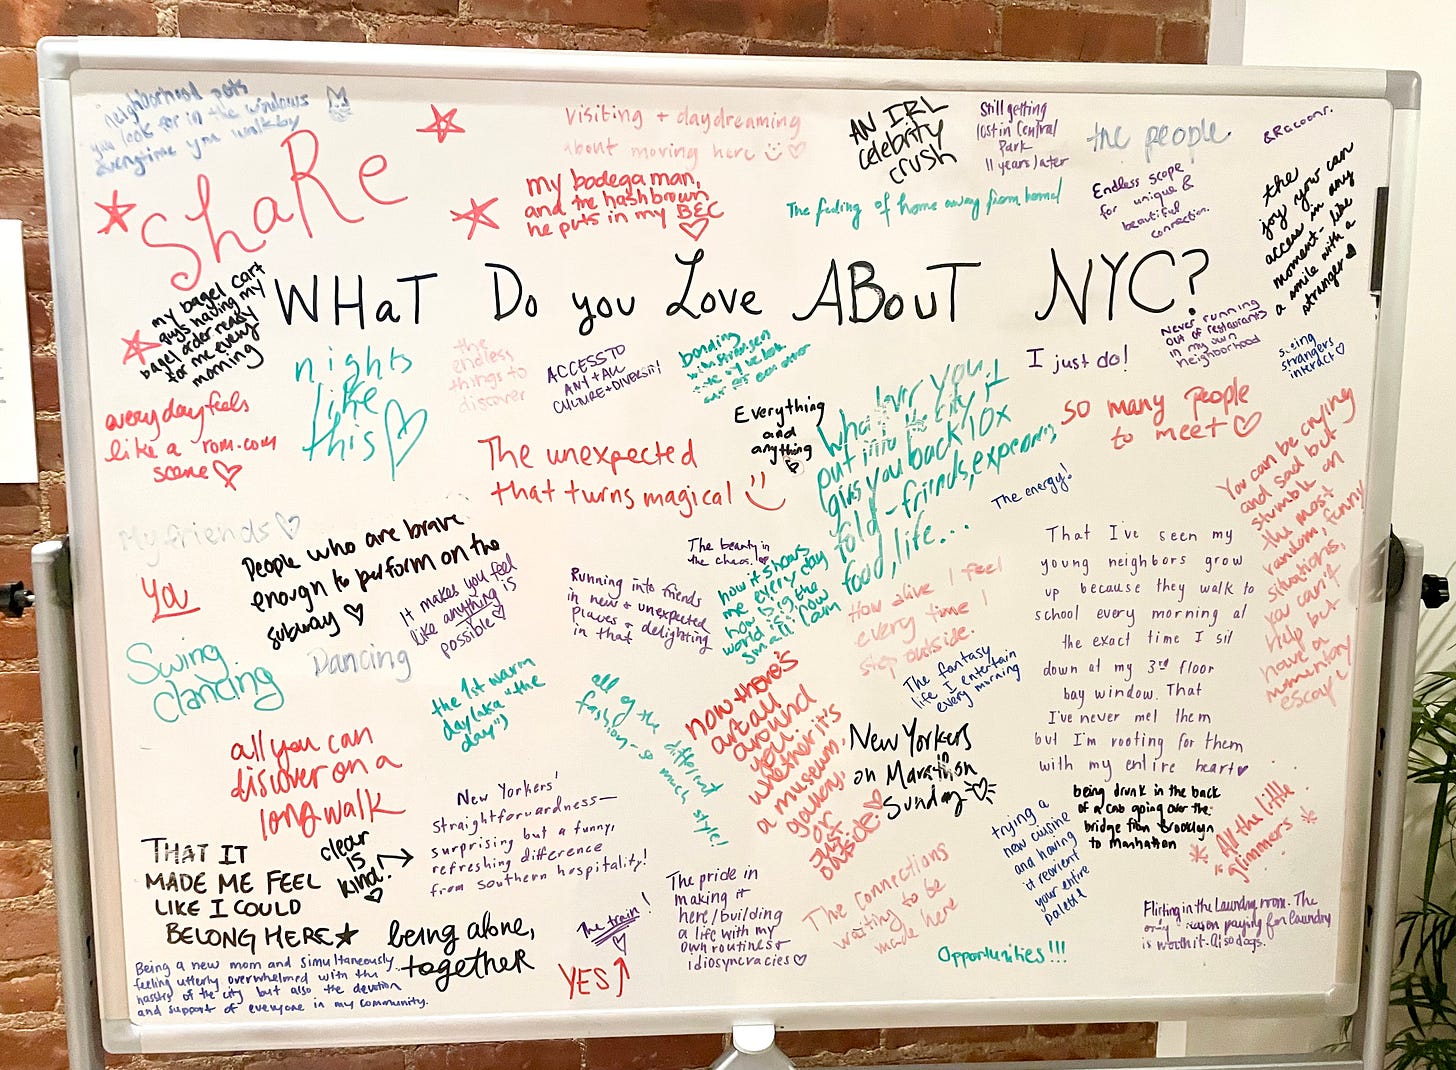 neighborhood pets
you look for in the windows
everytime you walk by
ShaRe
visiting + daydreaming
about moving here
my bodega man,
and the hashbrown
he puts in my BEC
AN IRL
celebrity
crush
Still getting
lost in Central
Park
11 years later
the people.
& Racoons.
The feeling of home away from home!
Endless scope
for unique &
beautiful
connection.
the
joy you can
access in any
moment - like
a smile with a
stranger
WHaT Do you Love ABouT NYC?
my bagel cart
guys having my
bagel order ready
for me every
morning
nights
like
this
the
endless
things to
discover
ACCESS TO
ANY + ALL
CULTURE + DIVERSITY
bonding
with strangers
we look
out for each other
I just do!
Never running
out of restaurants
in my own
neighborhood
seeing
strangers
interact
every day feels
like a rom-com
scene
The unexpected
that turns magical
Everything
and
anything
Whatever you
put into the city it
gives you back 10x
fold - friends, experiences
food, life...
so many people
to meet
The energy!
You can be crying
and sad but
stumble on
the most
random, funny
situations,
you can't
help but
have a
momentary
escape
My friends
You
People who are brave
enough to perform on the
subway
It makes you feel
like anything is
possible
The beauty in
the chaos.
Running into friends
in new + unexpected
places + delighting
in that
how it shows
me every day
how big the
world is & how
small I am
How alive I feel
every time I
step outside.
That I've seen my
young neighbors grow
up because they walk to
school every morning at
the exact time I sit
down at my 3rd floor
bay window. That
I've never met them
but I'm rooting for them
with my entire heart
Swing
dancing
Dancing
the 1st warm
day (aka "the
day")
all of the different
fashion - so much style!
now there's
art all
around
you.
whether it's
a museum,
gallery,
or
just
outside.
The fantasy
life I entertain
every morning
New Yorkers
on Marathon
Sunday
all you can
discover on a
long walk
New Yorkers'
straightforwardness—
surprising but a funny,
refreshing difference
from southern hospitality!
clear
is
kind!
trying a
new cuisine
and having
it reorient
your entire
palette
being drunk in the back
of a cab going over the
bridge from Brooklyn
to Manhattan
All the little
glimmers
THAT IT
MADE ME FEEL
LIKE I COULD
BELONG HERE
being alone,
together
The train!
YES
The pride in
making it
here/building
a life with my
own routines +
idiosyncracies
The connections
waiting to be
made here
Opportunities!!!
Flirting in the laundry room. The
only reason paying for laundry
is worth it. Also dogs.
Being a new mom and simultaneously
feeling utterly overwhelmed with the
hassles of the city but also the devotion
and support of everyone in my community.